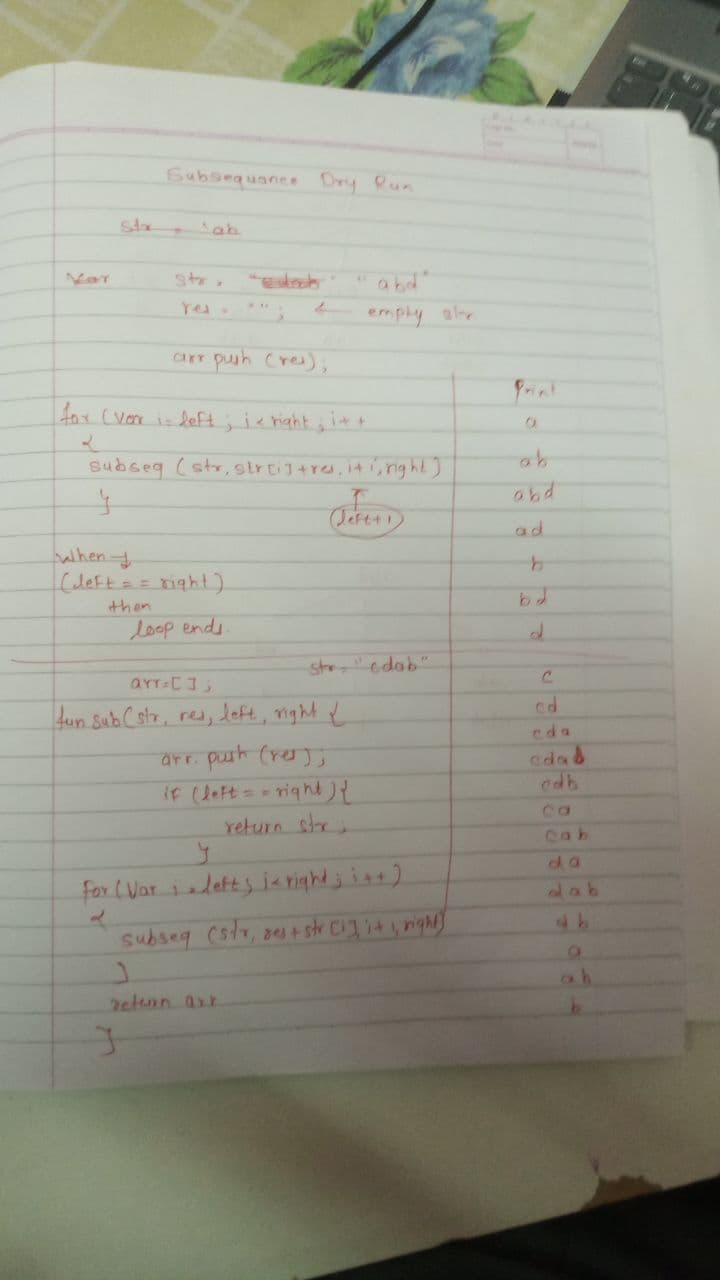 Subsequance Dry Run
str = "ab
Var str = "abd"
res = ""; ← empty str
arr push (res);
for (var i= left ; i< right ; i++
{
subseq (str, str[i]+res, i+1, right)
}
left+1
When
(left == right)
then
loop ends.
Print
a
ab
abd
ad
b
bd
d
str = "cdab"
arr=[];
fun sub(str, res, left, right {
arr. push (res);
if (left == right){
return str;
}
For (Var i = left; i< right; i++)
{
subseq (str, res+str[i], i+1, right)
}
return arr
}
c
cd
cda
cdab
cdb
ca
cab
da
dab
db
a
ab
b